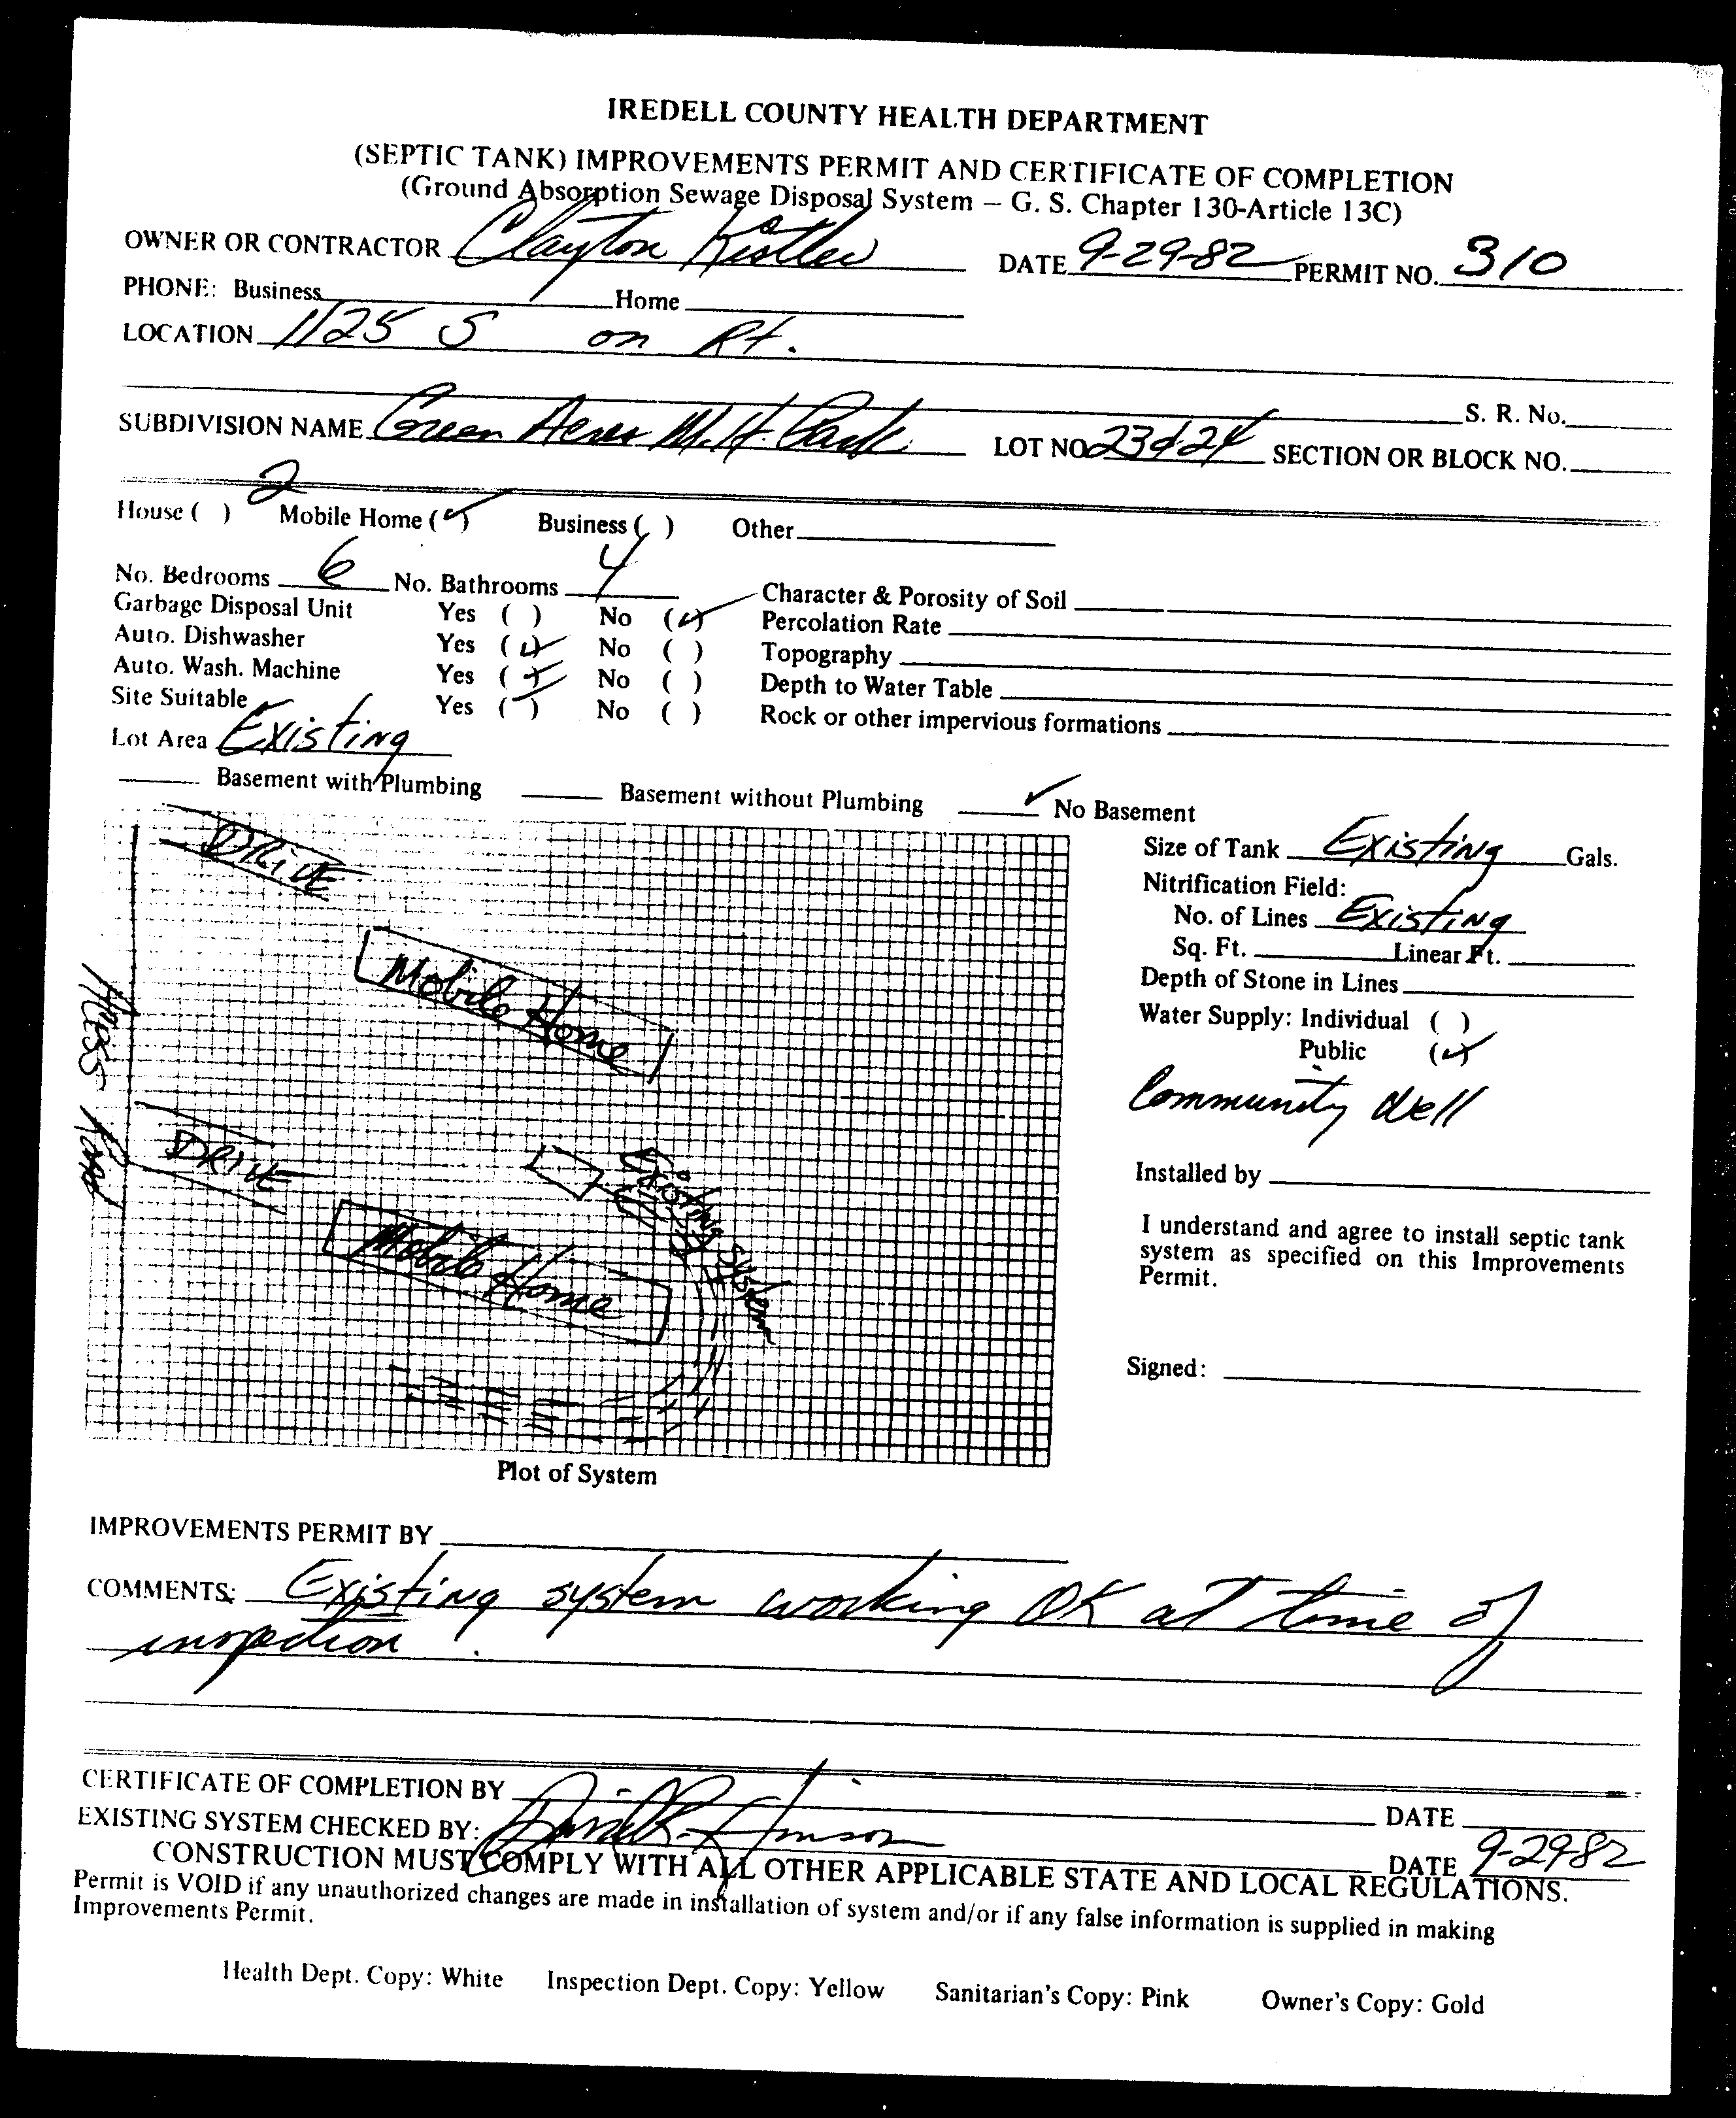 IREDELL COUNTY HEALTH DEPARTMENT
(SEPTIC TANK) IMPROVEMENTS PERMIT AND CERTIFICATE OF COMPLETION
(Ground Absorption Sewage Disposal System – G. S. Chapter 130-Article 13C)
OWNER OR CONTRACTOR Clayton Kistler DATE 9-29-82 PERMIT NO. 310
PHONE: Business Home
LOCATION 1125 S on Rt.
S. R. No.
SUBDIVISION NAME Green Acres M.H. Park LOT NO 23 & 24 SECTION OR BLOCK NO.
House ( ) 2 Mobile Home (✓) Business ( ) Other
No. Bedrooms 6 No. Bathrooms 4 Character & Porosity of Soil
Garbage Disposal Unit Yes ( ) No (✓) Percolation Rate
Auto. Dishwasher Yes (✓) No ( ) Topography
Auto. Wash. Machine Yes (✓) No ( ) Depth to Water Table
Site Suitable Yes ( ) No ( ) Rock or other impervious formations
Lot Area Existing
Basement with Plumbing Basement without Plumbing ✓ No Basement
DRIVE
Mobile Home
DRIVE
Existing System
Mobile Home
Plot of System
Size of Tank Existing Gals.
Nitrification Field:
No. of Lines Existing
Sq. Ft. Linear Ft.
Depth of Stone in Lines
Water Supply: Individual ( )
Public (✓)
Community Well
Installed by
I understand and agree to install septic tank
system as specified on this Improvements
Permit.
Signed:
IMPROVEMENTS PERMIT BY
COMMENTS: Existing system working OK at time of
inspection.
CERTIFICATE OF COMPLETION BY DATE
EXISTING SYSTEM CHECKED BY: DATE 9-29-82
CONSTRUCTION MUST COMPLY WITH ALL OTHER APPLICABLE STATE AND LOCAL REGULATIONS.
Permit is VOID if any unauthorized changes are made in installation of system and/or if any false information is supplied in making
Improvements Permit.
Health Dept. Copy: White Inspection Dept. Copy: Yellow Sanitarian's Copy: Pink Owner's Copy: Gold